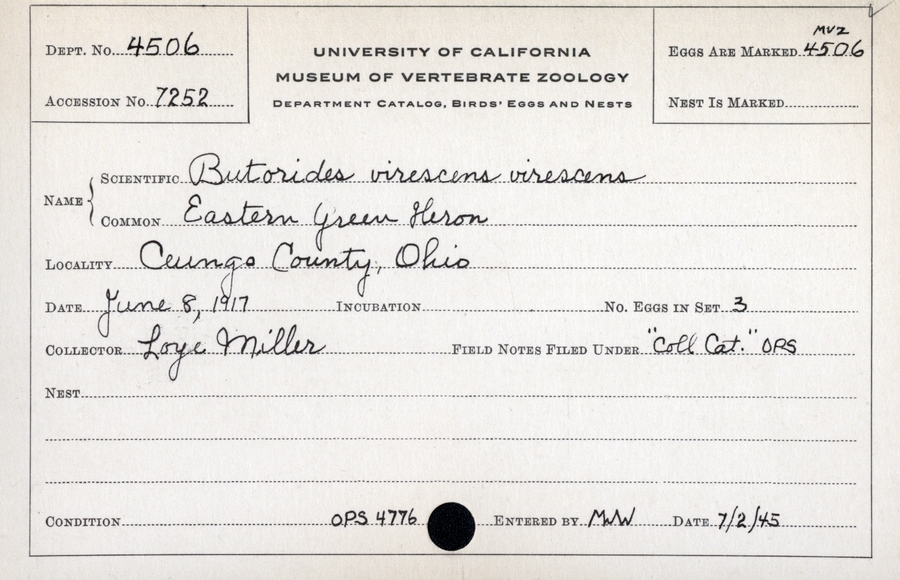 Dept. No. 4506
Accession No. 7252
UNIVERSITY OF CALIFORNIA
MUSEUM OF VERTEBRATE ZOOLOGY
Department Catalog, Birds' Eggs and Nests
MVZ
Eggs Are Marked 4506
Nest Is Marked
Name
Scientific Butorides virescens virescens
Common Eastern Green Heron
Locality Ceunga County, Ohio
Date June 8, 1917 Incubation No. Eggs in Set 3
Collector Loye Miller Field Notes Filed Under "Coll Cat." OPS
Nest
Condition OPS 4776 Entered by MWW Date 7/2/45